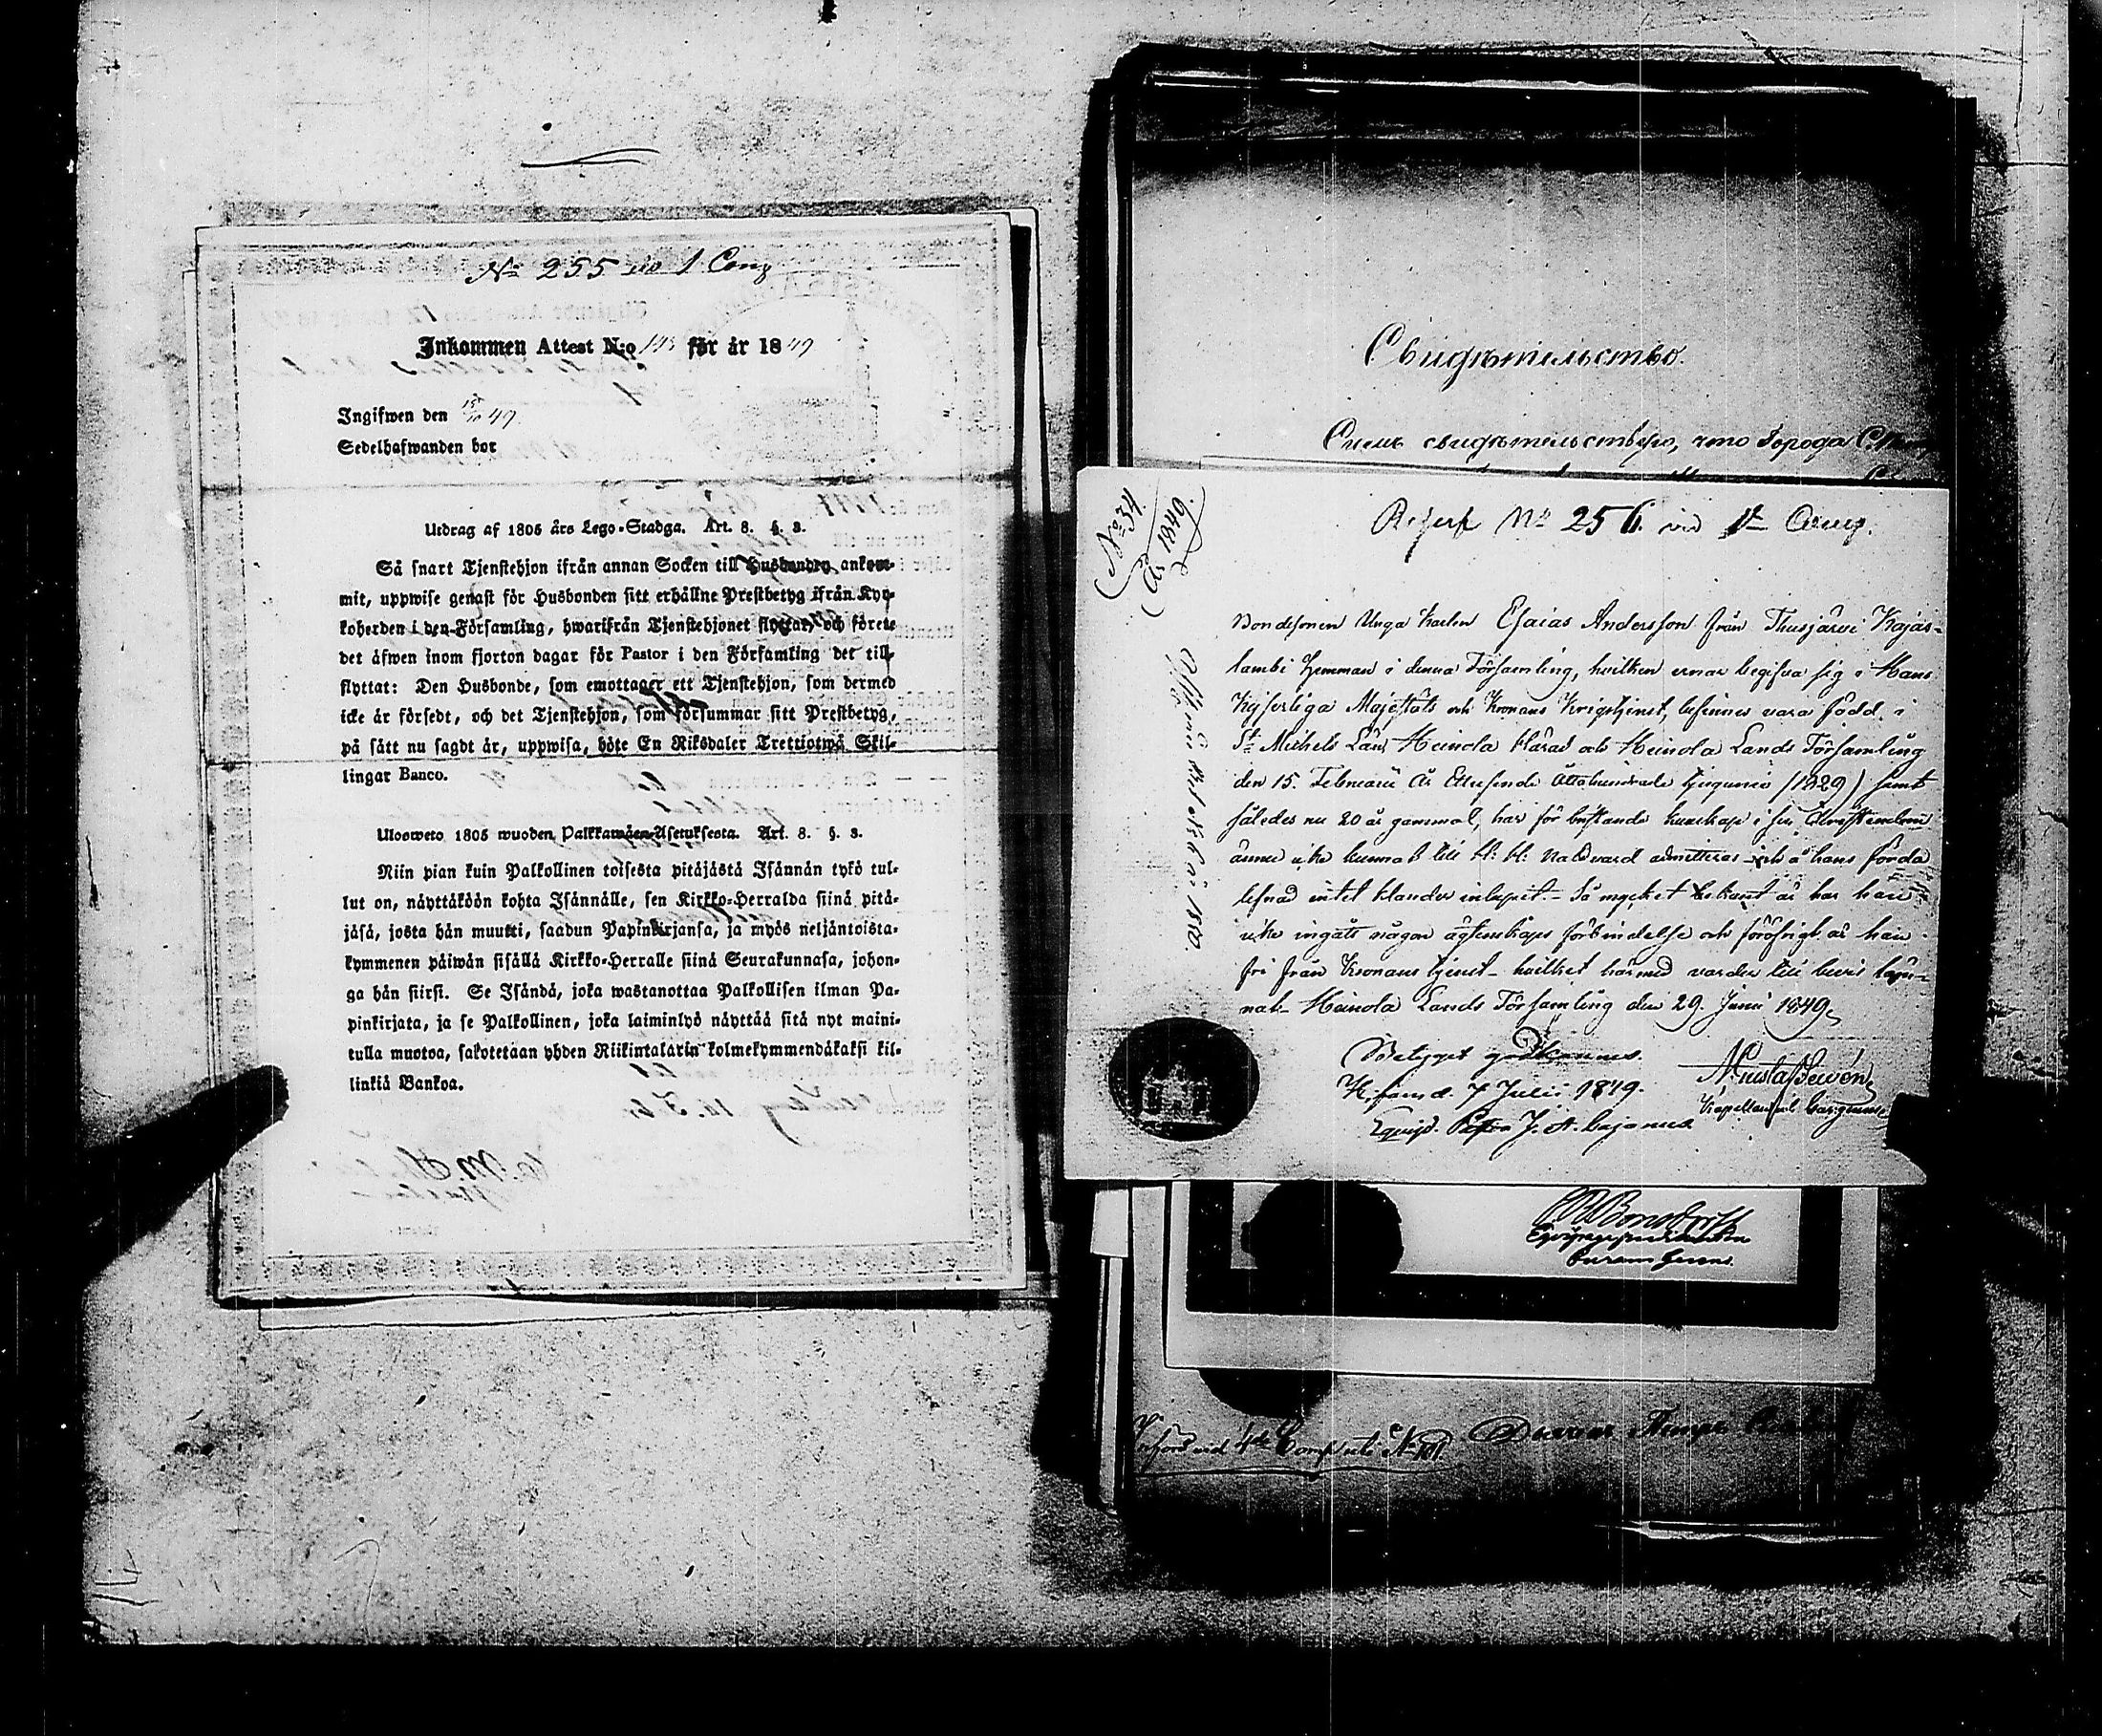 No 255 vid 1 Comp
Inkommen Attest N:o 143 för år 1849
Ingifwen den 15/10 49.
Sedelhafwanden bor
Utdrag af 1805 års Lego-Stadga. Art. 8. §. 3.
Så snart Tjenstehjon ifrån annan Socken till Husbonden ankom-
mit, uppwise genast för Husbonden sitt erhållne Prestbetyg ifrån Kyr-
koherden i den Församling, hwarifrån Tjenstehjonet flyttat, och förete
det äfwen inom fjorton dagar för Pastor i den Församling det till-
flyttat: Den Husbonde, som emottager ett Tjenstehjon, som dermed
icke är försedt, och det Tjenstehjon, som försummar sitt Prestbetyg,
på sätt nu sagdt är, uppwisa, böte En Riksdaler Trettiotwå Skil-
lingar Banco.
Ulosweto 1805 wuoden Palkkawäen-Asetuksesta. Art. 8. §. 3.
Niin pian kuin Palkollinen toisesta pitäjästä Isännän tykö tul-
lut on, näyttäköön kohta Isännälle, sen Kirkko-Herralda siinä pitä-
jäsä, josta hän muutti, saadun Papinkirjansa, ja myös neljäntoista-
kymmenen päiwän sisällä Kirkko-Herralle siinä Seurakunnasa, johon-
ga hän siirsi. Se Isändä, joka wastanottaa Palkollisen ilman Pa-
pinkirjata, ja se Palkollinen, joka laiminlyö näyttää sitä nyt maini-
tulla muotoa, sakotetaan yhden Riikintalarin kolmekymmendäkaksi kil-
linkiä Bankoa.
Свидѣтельство.
Симъ свидѣтельствую, что города
No 34
År 1849
Reserf No 256 vid 1sta Comp.
Bondesonen Unga Karlen Esaias Andersson från Thusjärvi Kajas-
lambi Hemman i denna Församling, hvilken ernar begifva sig i Hans
Kejserliga Majestäts och Kronans Krigstjenst, befinnes vara född i
St Michels Län, Heinola Härad och Heinola Lands Församling
den 15. Februarii År Ettusende Åttahundrade tjugunio (1829) samt
således nu 20 år gammal, har för bristande kunskap i sin Christendom
ännu icke kunnat till H: H: Nattvard admitteras och å hans förda
lefnad intet klander inlupit. Så mycket bekant är har han
icke ingått någon ägtenskaps förbindelse och föröfrigt är han
fri från Kronans tjenst hvilket härmed varder till bevis
Heinola Lands Församling den 29. Junii 1849.
Betyget godkännes.
H:fors d. 7 Julii 1849.
Equip. Pastor J. A. Cajanus
C Bonsdorff
Införd vid 4de Comp. sub No 101.